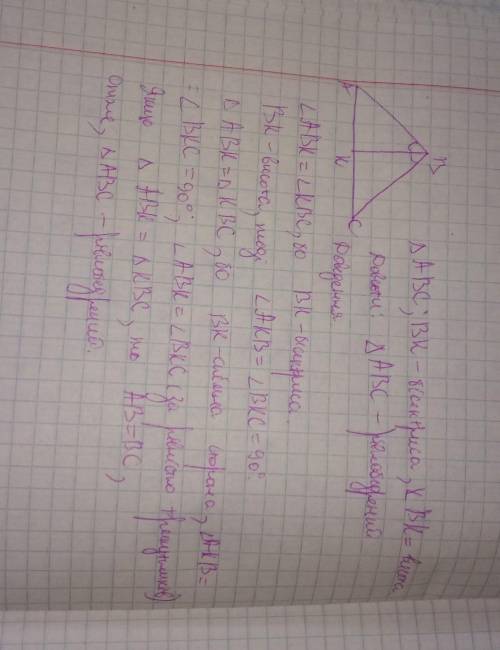 △ABC; BK - бісектриса, BK = висота
Довести: △ABC - рівнобедрений
B
A
K
C
Доведення.
∠ABK = ∠KBC, бо BK - бісектриса.
BK - висота, тоді ∠AKB = ∠BKC = 90°.
△ABK = △KBC, бо BK - спільна сторона, ∠AKB =
= ∠BKC = 90°, ∠ABK = ∠BKC (за рівністю трикутників)
Якщо △ABK = △KBC, то AB = BC,
Отже, △ABC - рівнобедрений.